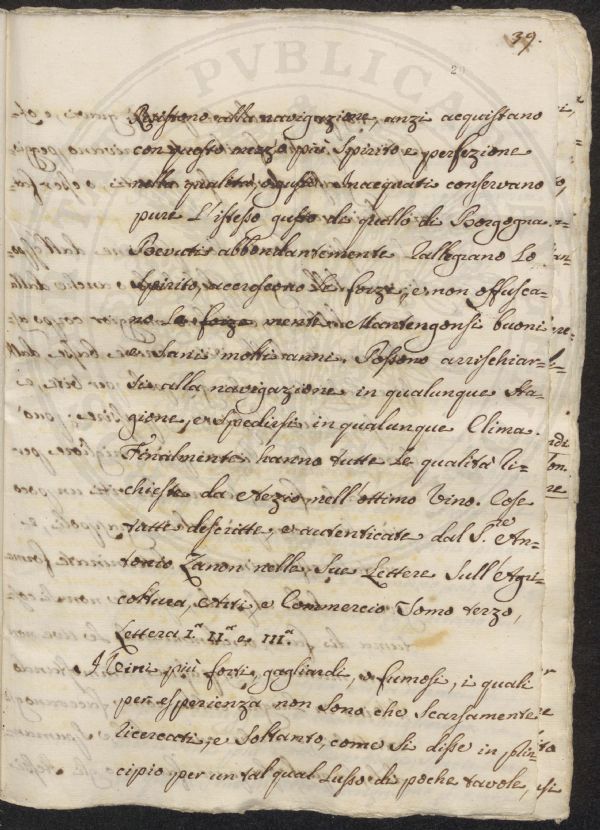 39.
20
Resistono alla navigazione, anzi acquistano
con questo mezzo più Spirito e perfezione
nella qualità, e gusto. Inacquati conservano
pure L'istesso gusto di quello di Borgogna.
Bevuti abbondantemente rallegrano Lo
Spirito, accrescono Le forze, e non offusca=
no Le forze mente. Mantengonsi buoni
e Sani molti anni. Possono arrischiar=
si alla navigazione in qualunque sta=
gione, e Spedirsi in qualunque Clima.
Finalmente hanno tutte Le qualità ri=
chieste da Aezio nell'ottimo Vino. Cose
tutte descritte, e autenticate dal S.re An=
tonio Zanon nelle Sue Lettere Sull'Agri=
coltura, Arti e Commercio Tomo terzo,
Lettera I.a II.a e III.a
I Vini più forti, gagliardi, e fumosi, i quali
per esperienza non Sono che Scarsamente
ricercati, e Soltanto, come Si disse in prin=
cipio per un tal qual Lusso di poche tavole, si
PVBLICA